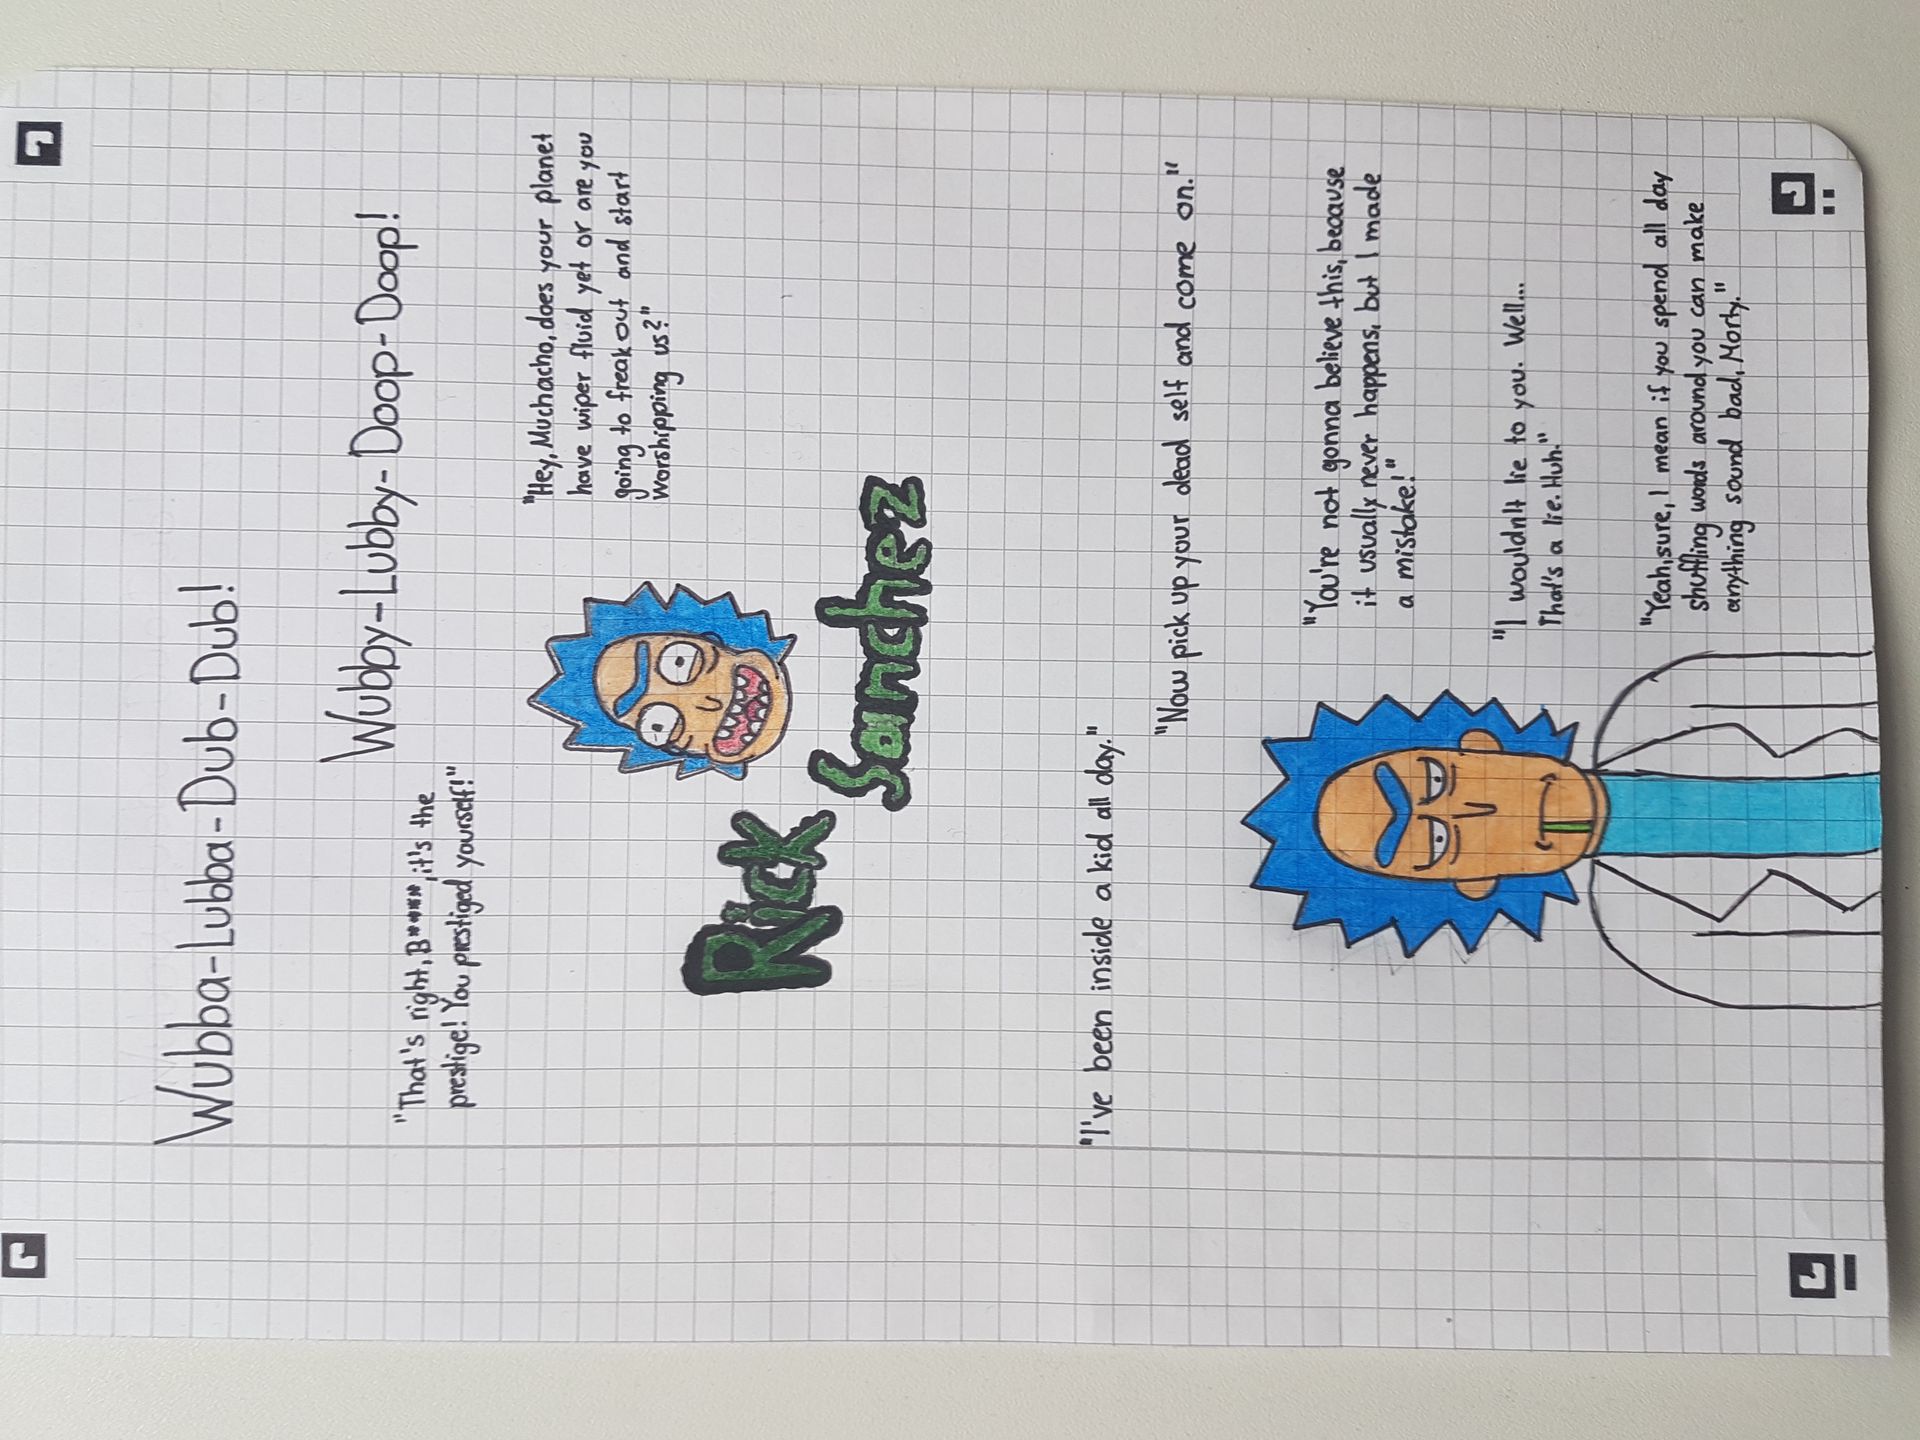 Wubba-Lubba-Dub-Dub!
Wubby-Lubby-Doop-Doop!
"That's right, B****, it's the
prestige! You prestiged yourself!"
"Hey, Muchacho, does your planet
have wiper fluid yet or are you
going to freak out and start
worshipping us?"
Rick Sanchez
"I've been inside a kid all day."
"Now pick up your dead self and come on."
"You're not gonna believe this, because
it usually never happens, but I made
a mistake!"
"I wouldn't lie to you. Well...
That's a lie. Huh."
"Yeah, sure, I mean if you spend all day
shuffling words around you can make
anything sound bad, Morty."